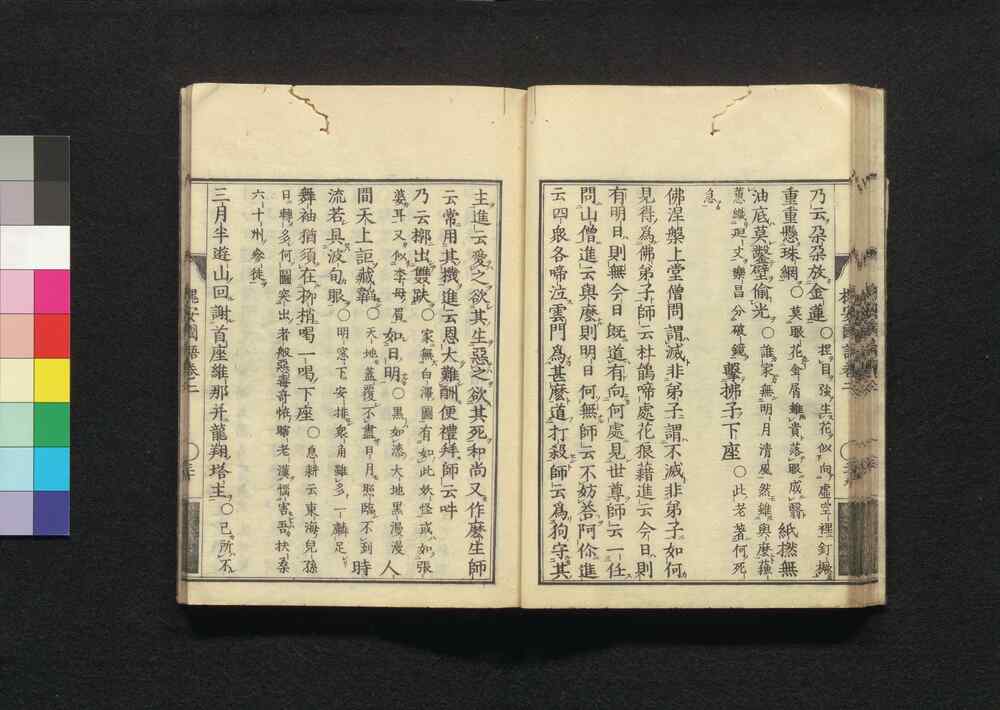 乃云朶朶放金蓮〇揑目強生花似向虛空裡釘橛
重重懸珠網〇莫眼花金屑雖貴落眼成翳紙撚無
油底莫鑿壁偷光〇誰家無明月清風然雖與麼
蔥嶺延丈樂昌分破鏡擊拂子下座〇此老著何死
急
佛涅槃上堂僧問謂滅非弟子謂不滅非弟子如何
見得爲佛弟子師云杜鵑啼處花狼藉進云今日則
有明日則無今日既道有向何處見世尊師云一任
問山僧進云與麼則明日何無師云不妨荅阿你進
云四衆各啼泣雲門爲甚麼道打殺師云爲狗字其
主進云愛之欲其生惡之欲其死和尚又作麼生師
云常用其機進云恩大難酬便禮拜師云吽
乃云槨出雙趺〇家無白澤圖有如此妖怪或如張
婆耳又似李母眉如日明〇黑如漆大地黑漫漫人
間天上詎藏韜〇天地蓋覆不盡日月照臨不到時
流若具波旬眼〇明窓下安排衆角雖多一麟足
舞袖猶須在柳梢喝一喝下座〇息耕云東海兒孫
日轉多何圖突出者般惡毒奇恠瞎老漢惱害吾扶桑
六十州參徒
三月半遊山回謝首座維那并龍翔塔主〇己所不
槐安國語卷二